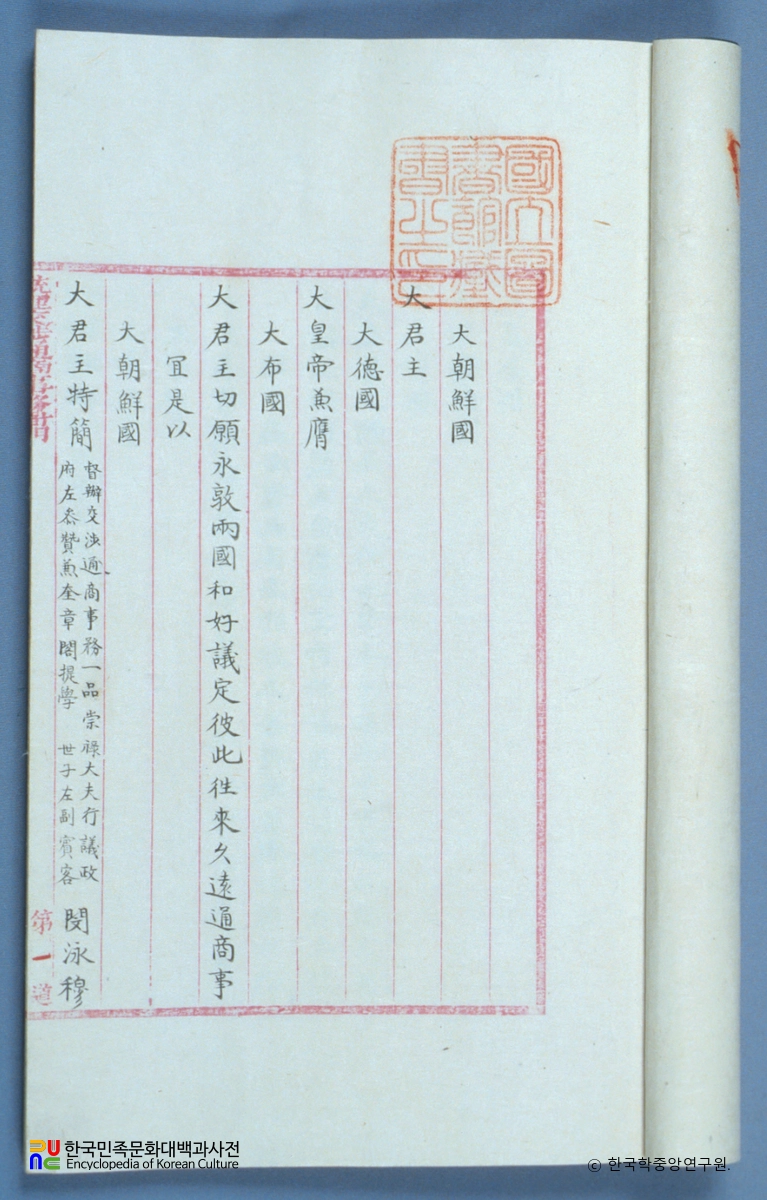 國立圖
書館藏
書之印
大朝鮮國
大君主
大德國
大皇帝兼膺
大布國
大君主切願永敦兩國和好議定彼此徃來久遠通商事
冝是以
大朝鮮國
大君主特簡
督辦交涉通商事務一品崇祿大夫行議政
府左叅贊兼奎章閣提學 世子左副賓客
閔泳穆
統理交涉通商事務衙門
第一道
한국민족문화대백과사전
Encyclopedia of Korean Culture
© 한국학중앙연구원.